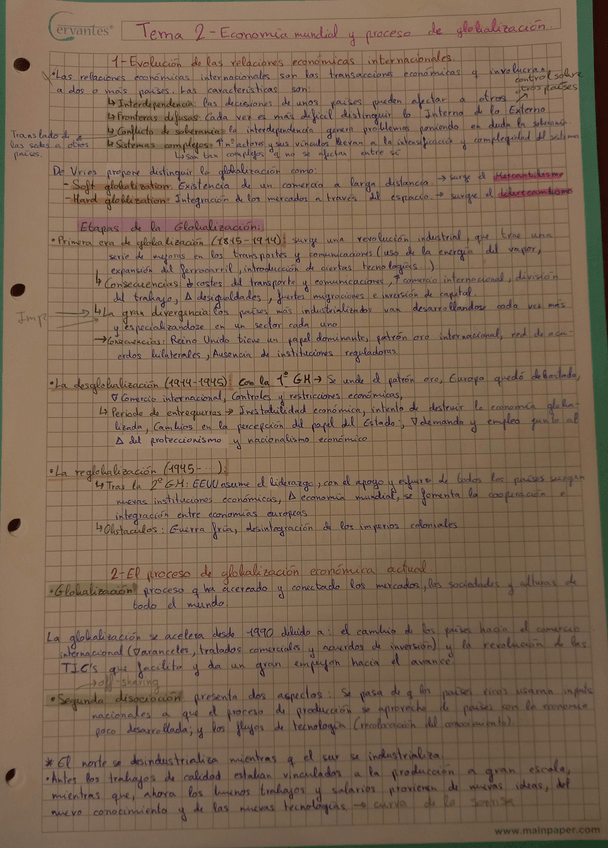 Cervantes
Tema 2 - Economía mundial y proceso de globalización.
1- Evolución de las relaciones económicas internacionales.
• Las relaciones económicas internacionales son las transacciones económicas q involucran
a dos o más países. Las características son:
control sobre
otros países
↳ Interdependencia: las decisiones de unos países pueden afectar a otros
↳ Fronteras difusas: Cada vez es más difícil distinguir lo Interno de lo Externo
↳ Conflicto de soberanía: la interdependencia genera problemas poniendo en duda la soberanía
↳ Sistemas complejos: ↑nº actores y sus vínculos llevan a la intensificación y complejidad del sistema
↳ son tan complejos q no se afectan entre sí
otros
países.
De Vries propone distinguir la globalización como:
- Soft globalization: Existencia de un comercio a larga distancia → surge el Mercantilismo
- Hard globlization: Integración de los mercados a través del espacio. → surge el librecambismo
Etapas de la Globalización:
• Primera era de globalización (1815-1914): surge una revolución industrial, que trae una
serie de mejoras en los transportes y comunicaciones (uso de la energía del vapor,
expansión del ferrocarril, introducción de ciertas tecnologías...)
↳ Consecuencias: ↓ costes del transporte y comunicaciones, ↑ comercio internacional, división
del trabajo, Δ desigualdades, fuertes migraciones e inversión de capital.
Imp
↳ La gran divergencia: los países más industrializados van desarrollandose cada vez más
y especializandose en un sector cada uno
→ Consecuencias: Reino Unido tiene un papel dominante, patrón oro internacional, red de acu-
erdos bilaterales, Ausencia de instituciones reguladoras
• La desglobalización (1914-1945): Con la 1º GM → Se unde el patrón oro, Europa quedó debilitada,
∇ Comercio internacional, Controles y restricciones económicas,
↳ Periodo de entreguerras → Inestabilidad económica, intento de destruir la economía globa-
lizada, Cambios en la percepción del papel del Estado, ∇ demanda y empleo junto al
Δ del proteccionismo y nacionalismo económico
• La reglobalización (1945- ):
↳ Tras la 2º GM: EEUU asume el liderazgo, con el apoyo y esfuerzo de todos los países surgen
nuevas instituciones económicas, Δ economía mundial, se fomenta la cooperación e
integración entre economías europeas
↳ Obstaculos: Guerra fría, desintegración de los imperios coloniales
2- El proceso de globalización económica actual
• Globalización: proceso q ha acercado y conectado los mercados, las sociedades y culturas de
todo el mundo.
La globalización se acelera desde 1990 dibido a: el cambio de los países hacia el comercio
internacional (∇ aranceles, tratados comerciales y acuerdos de inversión) y la revolución de las
TIC's que facilita y da un gran empujon hacia el avance
→ off-sharing
• Segunda disociación: presenta dos aspectos: Se pasa de q los países ricos usaran inputs
nacionales a que el proceso de producción se aproveche de países con la economía
poco desarrollada; y los flujos de tecnología (revolución del conocimiento).
* El norte se desindustrializa mientras q el sur se industrializa
• Antes los trabajos de calidad estaban vinculados a la producción a gran escala,
mientras que, ahora los buenos trabajos y salarios provienen de nuevas ideas, del
nuevo conocimiento y de las nuevas tecnologías → curva de la sonrisa
www.mainpaper.com